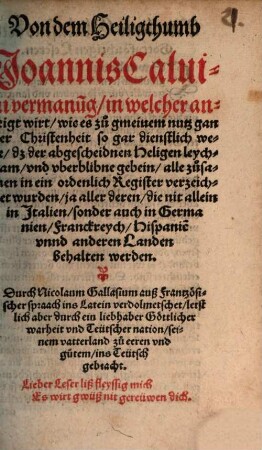 Von dem Heiligthumb
Joannis Calui-
ni vermanũg / in welcher an-
zeigt wirt / wie es zů gmeinem nutz gan
er Christenheit so gar dienstlich we-
/ dz der abgescheidnen Heligen leych-
nam / vnd vberblibne gebein / alle zůsa-
men in ein ordenlich Register verzeich-
net wurden / ja aller deren / die nit allein
in Italien / sonder auch in Germa
nien / Franckreych / Hispaniē
vnnd anderen Landen
behalten werden.
Durch Nicolaum Gallasium auß Frantzösi-
scher spraach ins Latein verdolmetschet / letst
lich aber durch ein liebhaber Göttlicher
warheit vnd Teütscher nation / sei-
nem vatterland zů eeren vnd
gůtem / ins Teütsch
gebracht.
Lieber Leser liß fleyssig mich
Es wirt gwüß nit gereüwen dich.